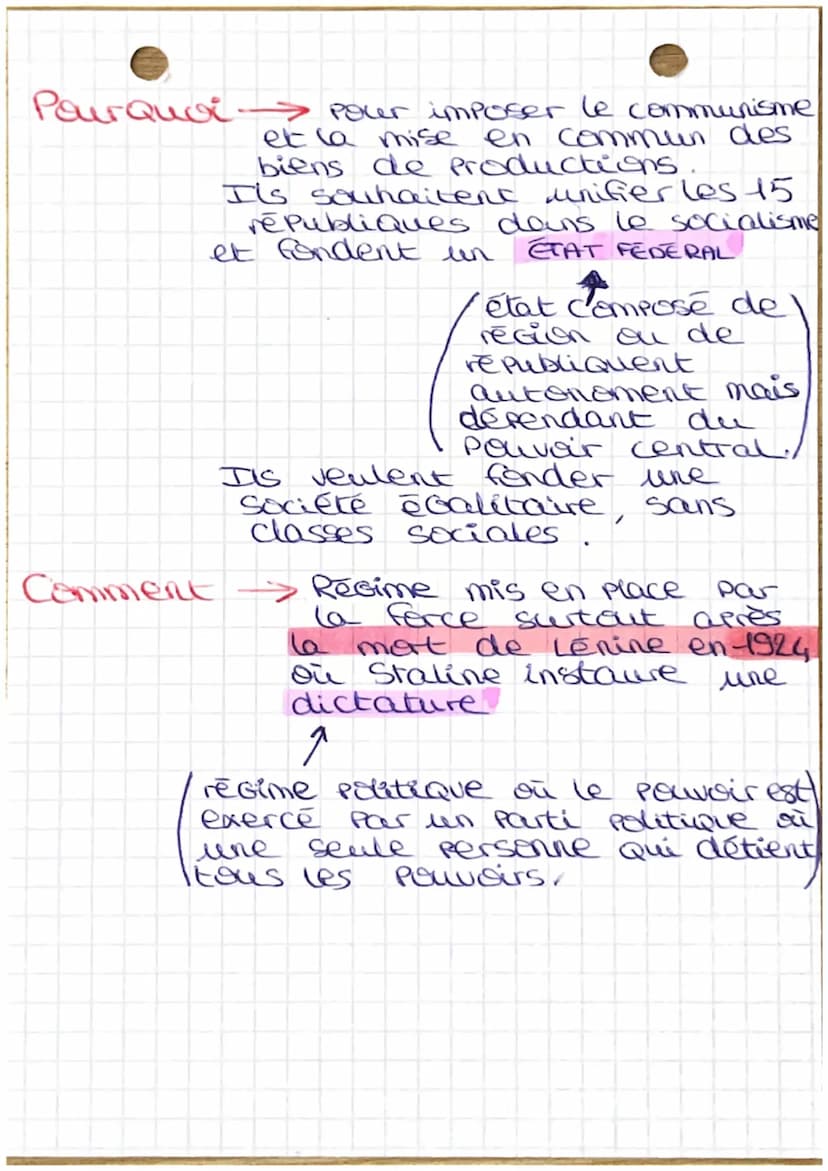 Pourquoi → pour imposer le communisme
et la mise en commun des
biens de productions.
Ils souhaitent unifier les 15
républiques dans le socialisme
et fondent un ÉTAT FÉDÉRAL
(état composé de
région ou de
républiquent
autonoment mais
dépendant du
pouvoir central.)
Ils veulent fonder une
société égalitaire, sans
classes sociales.
Comment → Régime mis en place par
la force surtout après
la mort de Lénine en 1924,
où Staline instaure une
dictature
(régime politique où le pouvoir est
exercé par un parti politique où
une seule personne qui détient
tous les pouvoirs.